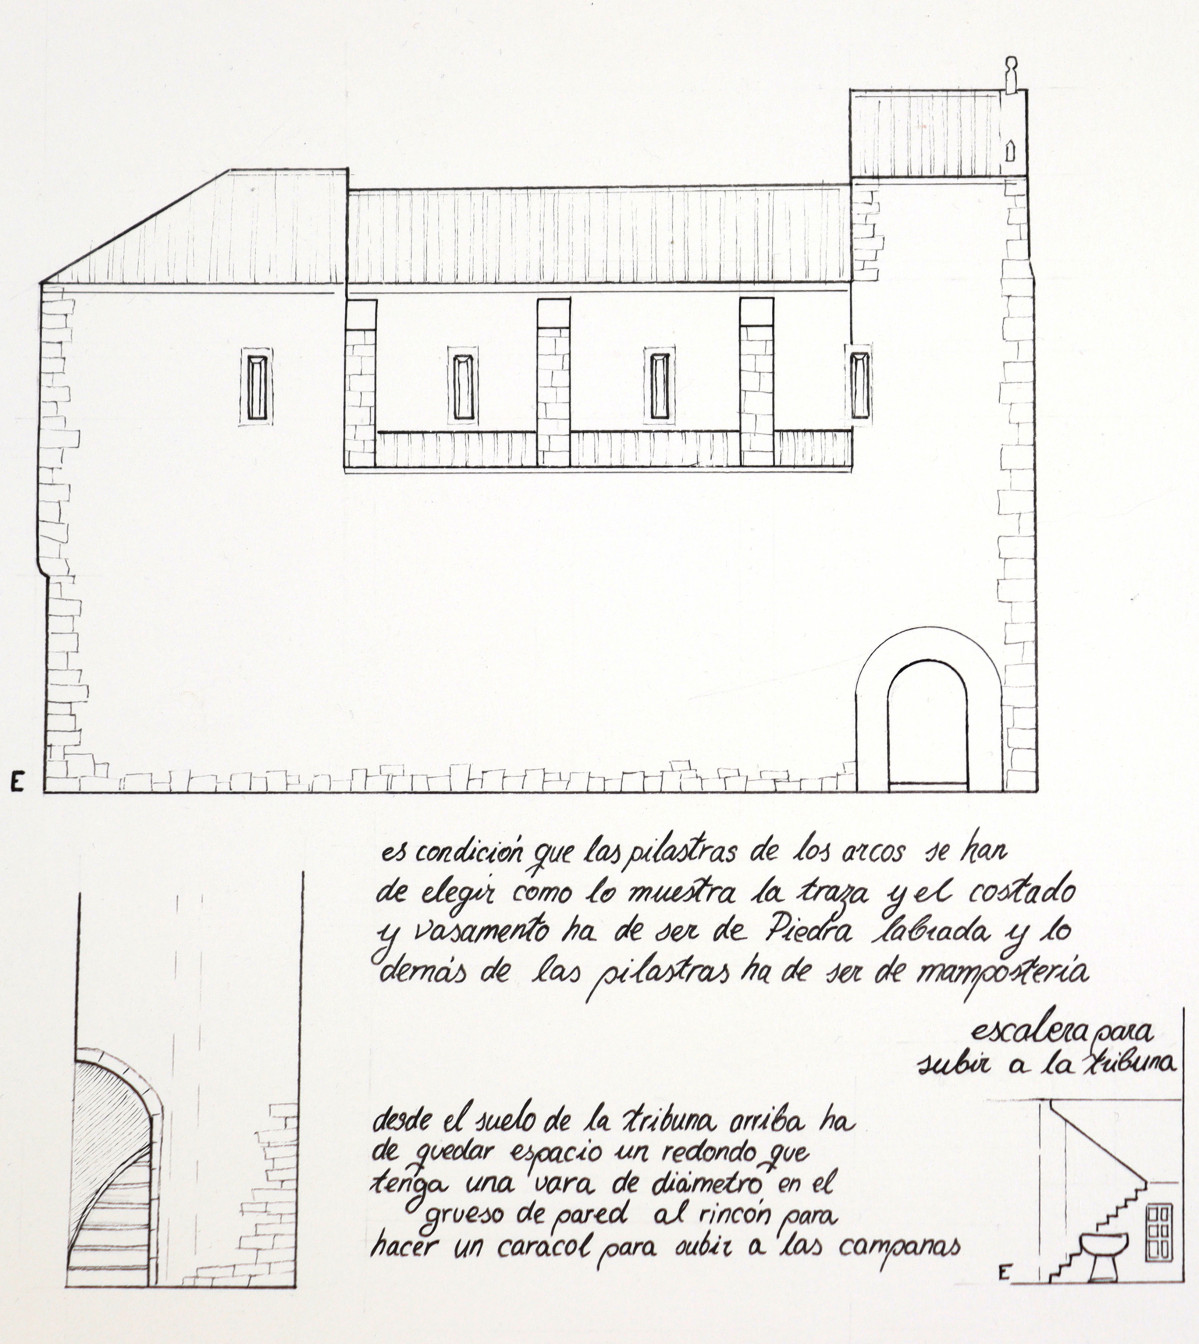 E
es condición que las pilastras de los arcos se han
de elegir como lo muestra la traza y el costado
y vasamento ha de ser de Piedra labrada y lo
demás de las pilastras ha de ser de mampostería
escalera para
subir a la tribuna
desde el suelo de la tribuna arriba ha
de quedar espacio un redondo que
tenga una vara de diámetro en el
grueso de pared al rincón para
hacer un caracol para subir a las campanas
E